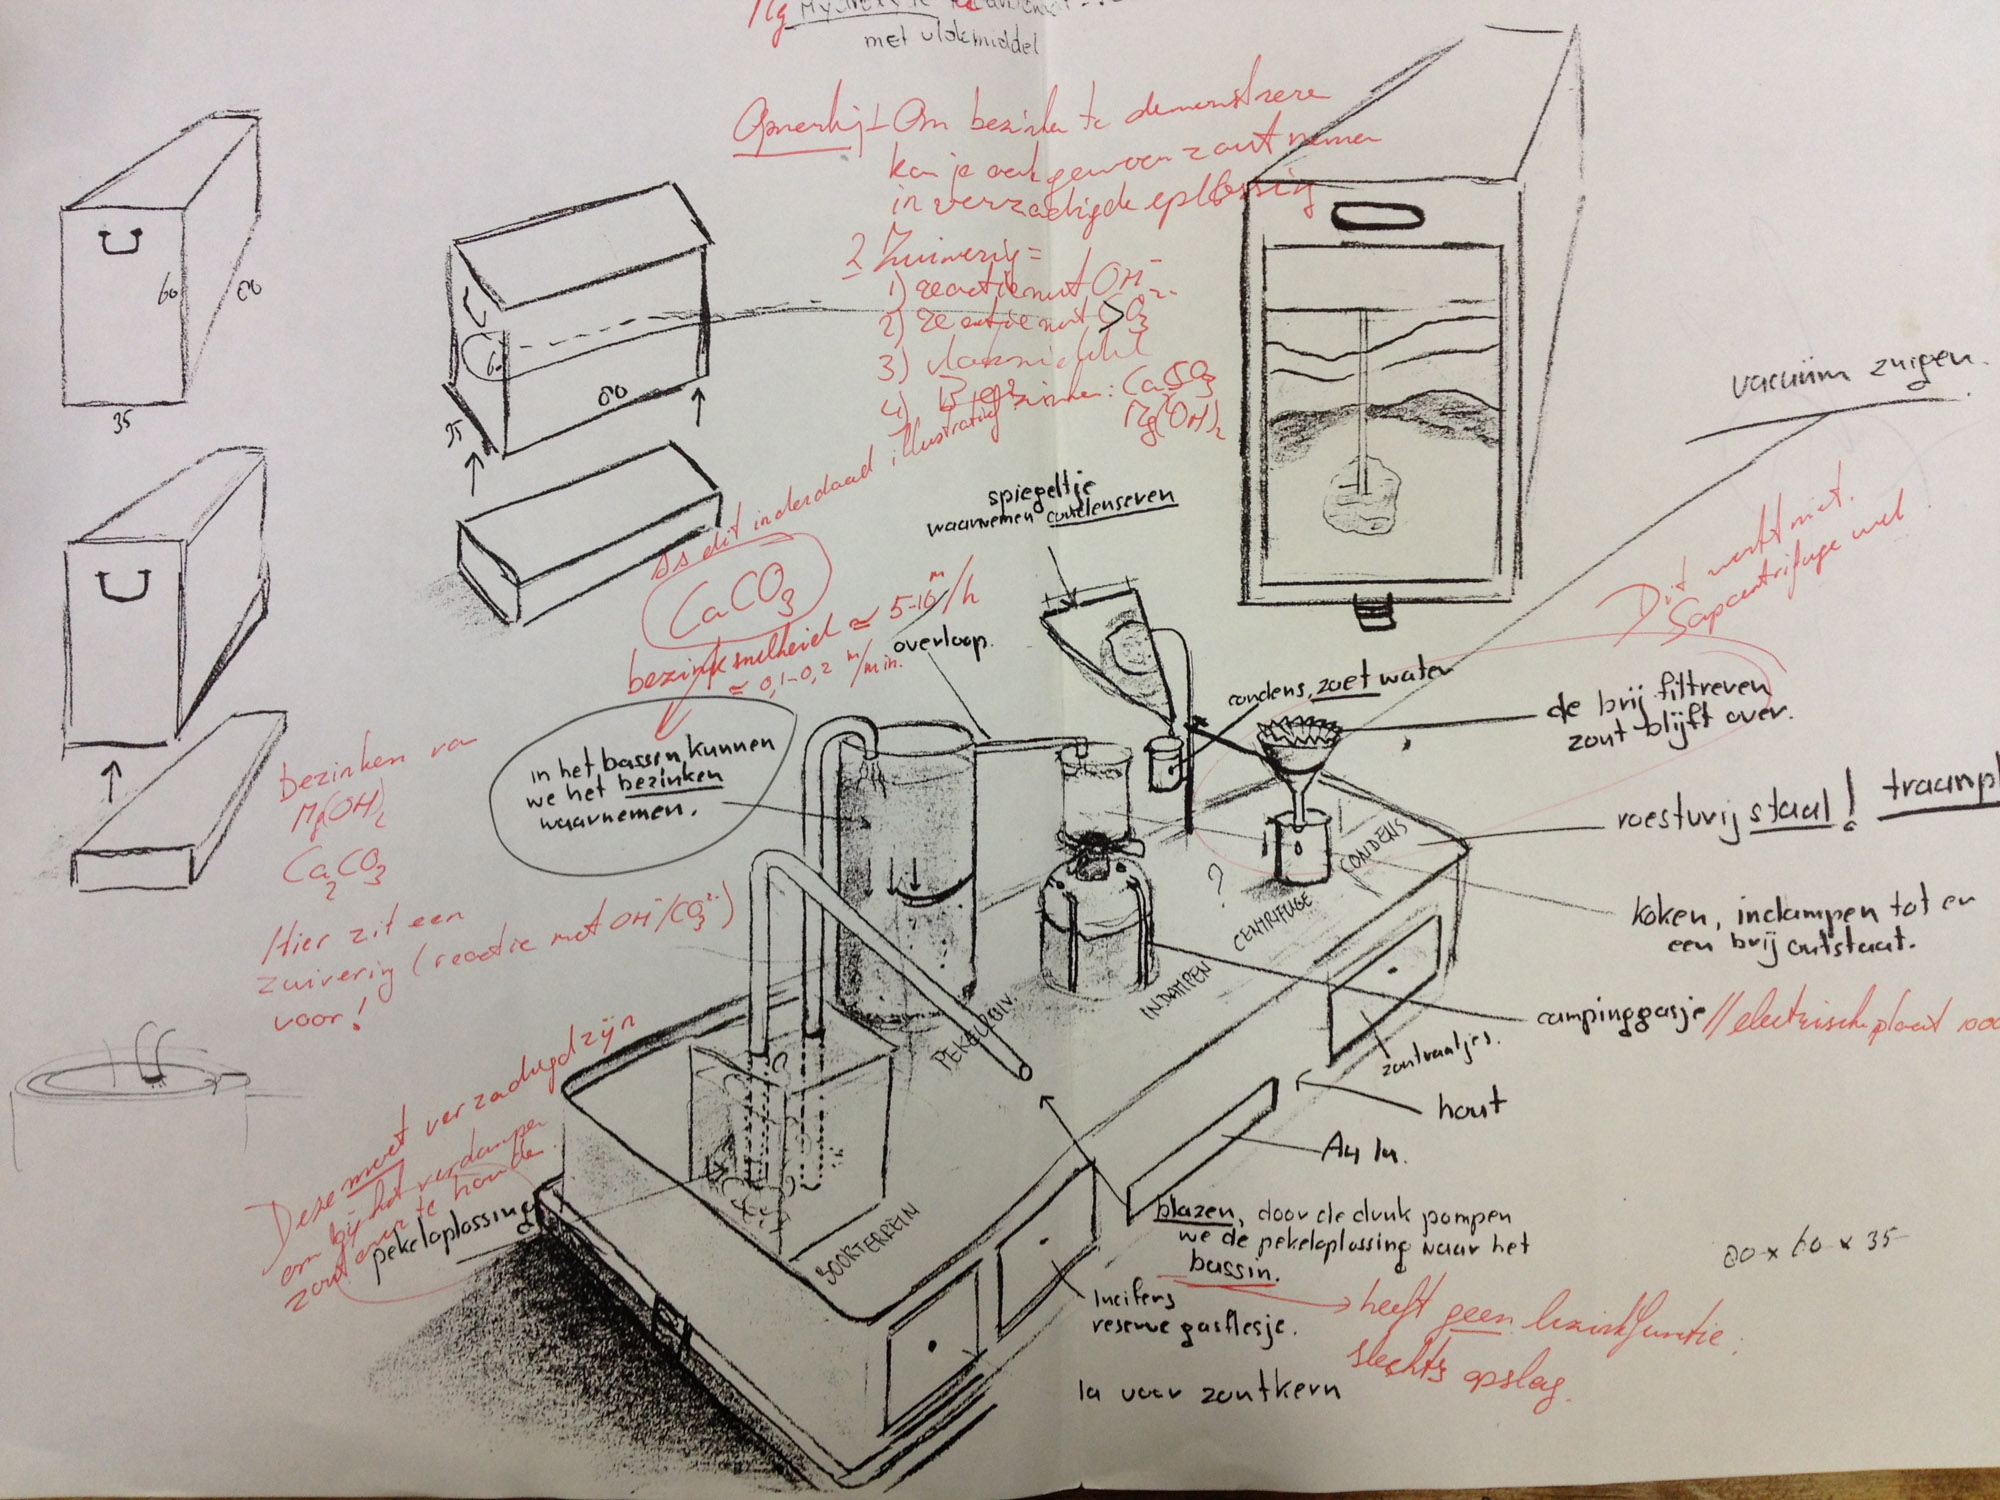 Mg Hydroxide
met vlokmiddel
Opmerking 1 Om bezinken te demonstreren
kan je ook gewoon zout nemen
in verzadigde oplossing
2 Zuivering =
1) reactie met OH⁻
2) reactie met CO₃²⁻
3) vlokmiddel
4) Bezinken: CaCO₃
Mg(OH)₂
60
80
35
60
80
35
vacuüm zuigen.
Dit werkt niet.
Sapcentrifuge wel
spiegeltje
waarnemen condenseren
Is dit inderdaad illustratief?
CaCO₃
bezinksnelheid ≃ 5-10 m/h
≃ 0,1-0,2 m/min.
overloop.
condens, zoet water
de brij filtreren
zout blijft over.
in het bassin kunnen
we het bezinken
waarnemen.
bezinken van
Mg(OH)₂
Ca₂CO₃
Hier zit een
zuivering (reactie met OH⁻/CO₃²⁻)
voor!
roestvrij staal!
traanpl
?
CONDENS
CENTRIFUGE
INDAMPEN
PEKELZUIV.
BOORTERREIN
koken, indampen tot er
een brij ontstaat.
campinggasje // electrische plaat 1000
zoutvaatjes.
hout
Au la.
Deze moet verzadigd zijn
om bij het verdampen
zout over te houden.
pekeloplossing
blazen, door de druk pompen
we de pekeloplossing naar het
bassin.
heeft geen bezinkfunctie.
slechts opslag.
80 x 60 x 35
lucifers
reserve gasflesje.
la voor zoutkern